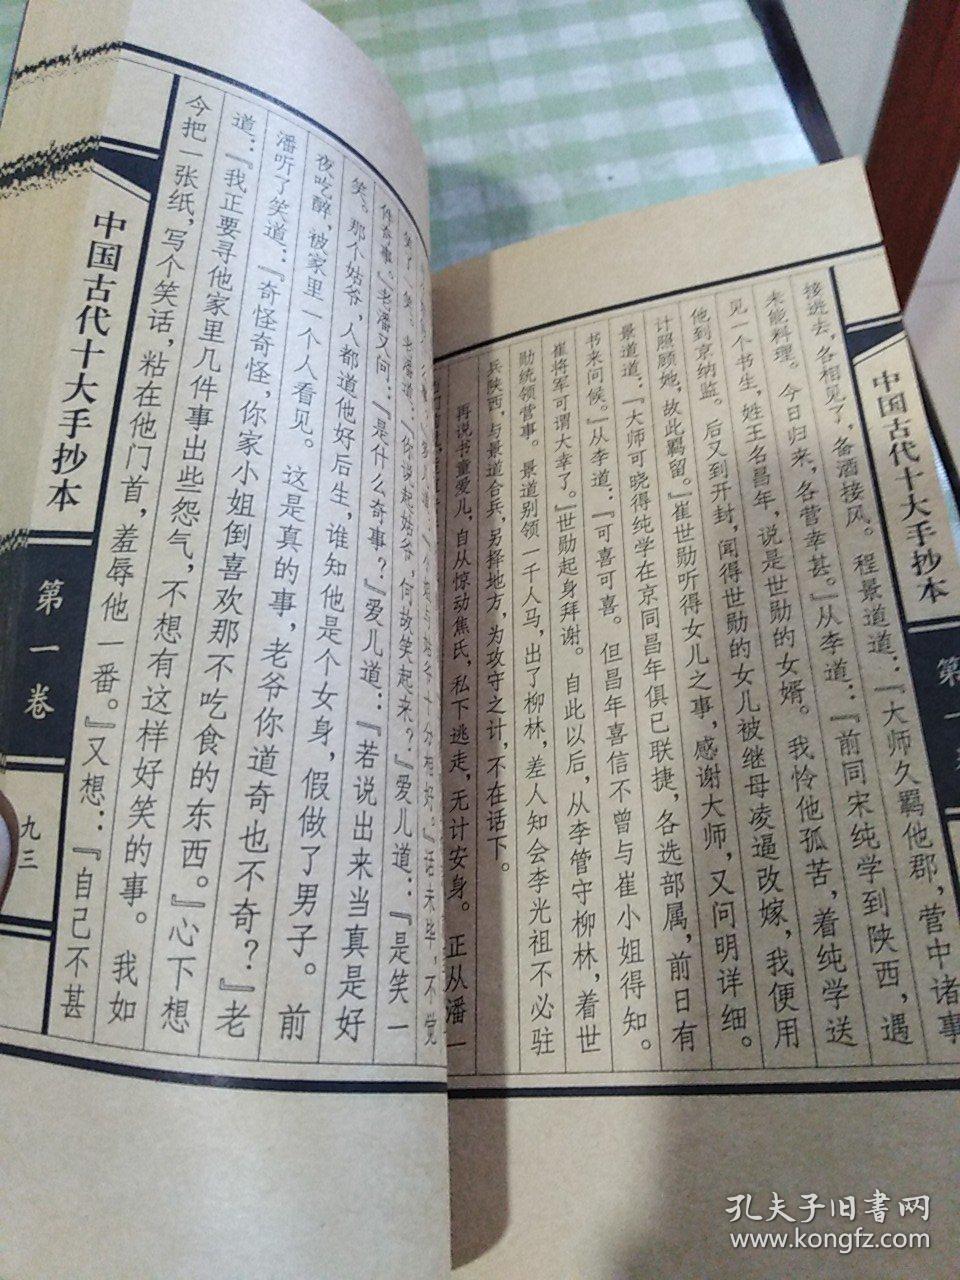 中国古代十大手抄本
第一卷
接进去，各相见了，备酒接风。程景道道：『大师久羁他郡，营中诸事
未能料理。今日归来，各营幸甚。』从李道：『前同宋纯学到陕西，遇
见一个书生，姓王名昌年，说是世勋的女婿。我怜他孤苦，着纯学送
他到京纳监。后又到开封，闻得世勋的女儿被继母凌逼改嫁，我便用
计照顾她，故此羁留。』崔世勋听得女儿之事，感谢大师，又问明详细。
景道道：『大师可晓得纯学在京同昌年俱已联捷，各选部属，前日有
书来问候。』从李道：『可喜可喜。但昌年喜信不曾与崔小姐得知。
崔将军可谓大幸了。』世勋起身拜谢。自此以后，从李管守柳林，着世
勋统领营事。景道别领一千人马，出了柳林，差人知会李光祖不必驻
兵陕西，与景道合兵，另择地方，为攻守之计，不在话下。
再说书童爱儿，自从惊动焦氏，私下逃走，无计安身。正从潘一
笑了一笑。老潘道：『你说起姑爷，何故笑起来？』爱儿道：『是笑一
件奇事。』老潘又问：『是什么奇事？』爱儿道：『若说出来当真是好
笑。那个姑爷，人都道他好后生，谁知他是个女身，假做了男子。前
夜吃醉，被家里一个人看见。这是真的事，老爷你道奇也不奇？』老
潘听了笑道：『奇怪奇怪，你家小姐倒喜欢那不吃食的东西。』心下想
道：『我正要寻他家里几件事出些怨气，不想有这样好笑的事。我如
今把一张纸，写个笑话，粘在他门首，羞辱他一番。』又想：『自己不甚
中国古代十大手抄本
第一卷
九三
孔夫子旧书网
www.kongfz.com